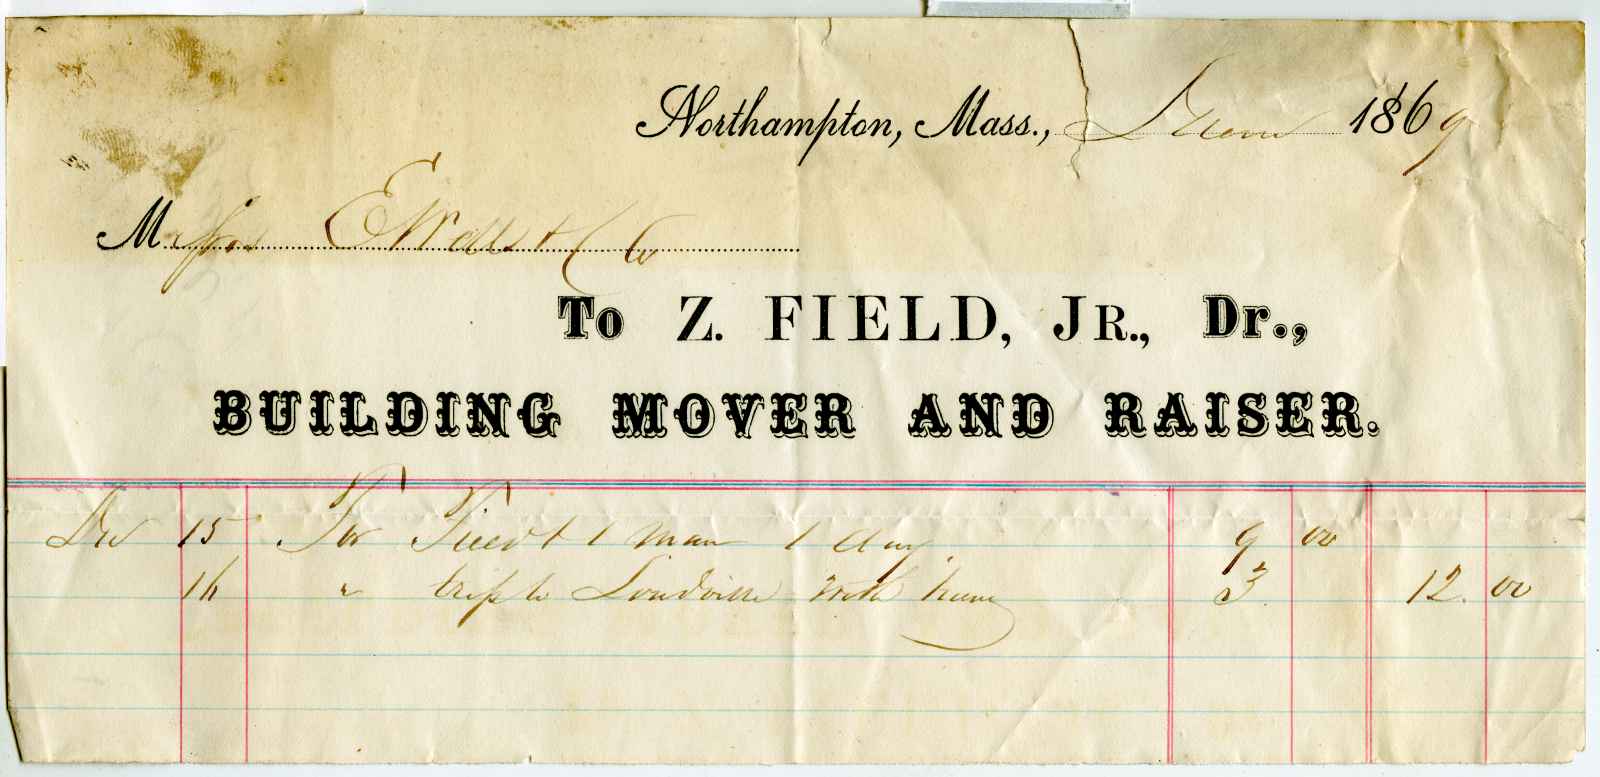 Northampton, Mass., 1869
Messrs E Wells & Co
To Z. FIELD, JR., Dr.,
BUILDING MOVER AND RAISER.
Dec 15 For Field & 1 man 1 day 9 00
16 " trip to Loudville with team 3 12.00